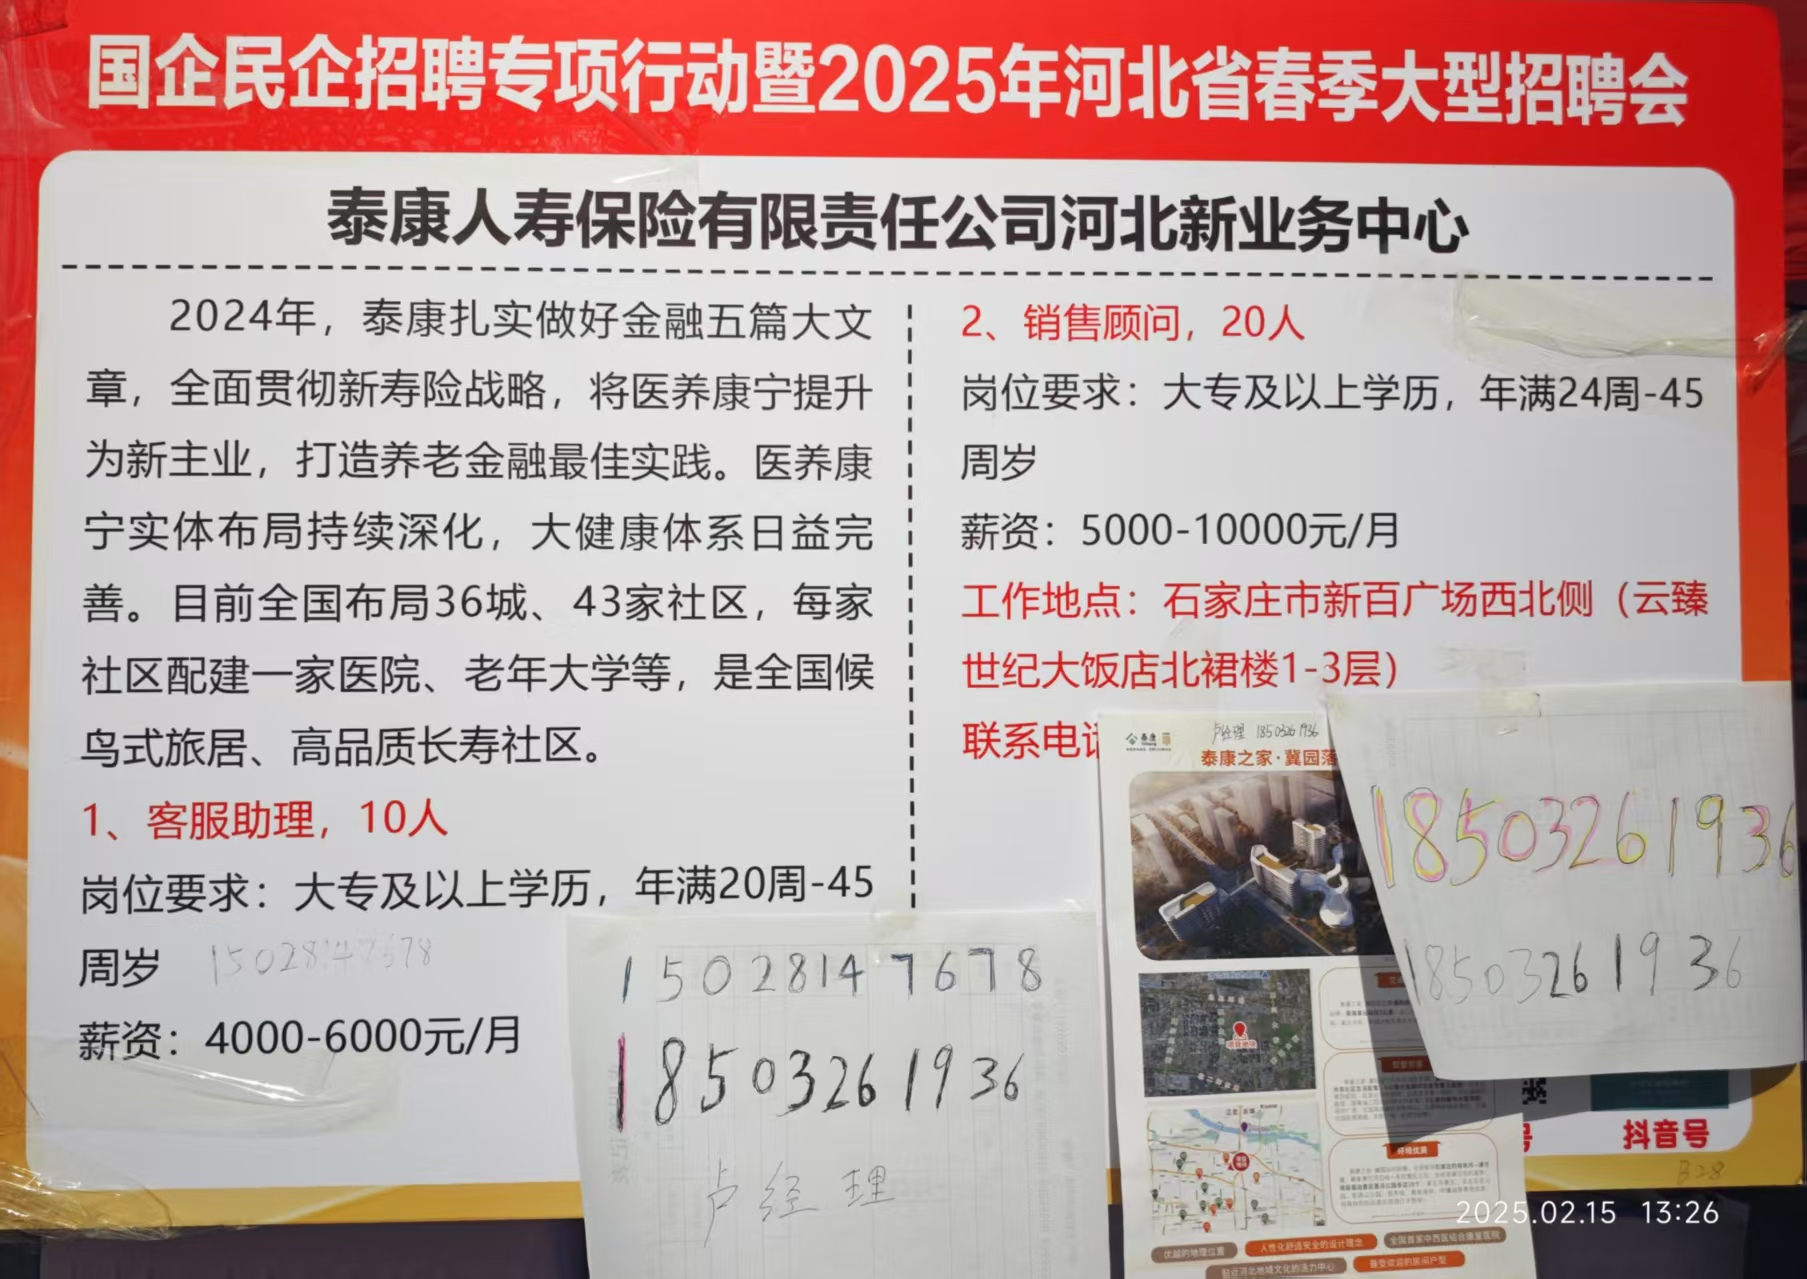 国企民企招聘专项行动暨2025年河北省春季大型招聘会
泰康人寿保险有限责任公司河北新业务中心
2024年，泰康扎实做好金融五篇大文
章，全面贯彻新寿险战略，将医养康宁提升
为新主业，打造养老金融最佳实践。医养康
宁实体布局持续深化，大健康体系日益完
善。目前全国布局36城、43家社区，每家
社区配建一家医院、老年大学等，是全国候
鸟式旅居、高品质长寿社区。
1、客服助理，10人
岗位要求：大专及以上学历，年满20周-45
周岁
15028147678
薪资：4000-6000元/月
2、销售顾问，20人
岗位要求：大专及以上学历，年满24周-45
周岁
薪资：5000-10000元/月
工作地点：石家庄市新百广场西北侧（云臻
世纪大饭店北裙楼1-3层）
联系电话
15028147678
18503261936
卢经理
泰康
卢经理 18503261936
泰康之家·冀园落
环境优美
优越的地理位置
人性化舒适安全的设计理念
全国首家中西医结合康复医院
毗近河北地域文化的活力中心
备受欢迎的房间户型
18503261936
18503261936
号
抖音号
B28
2025.02.15 13:26